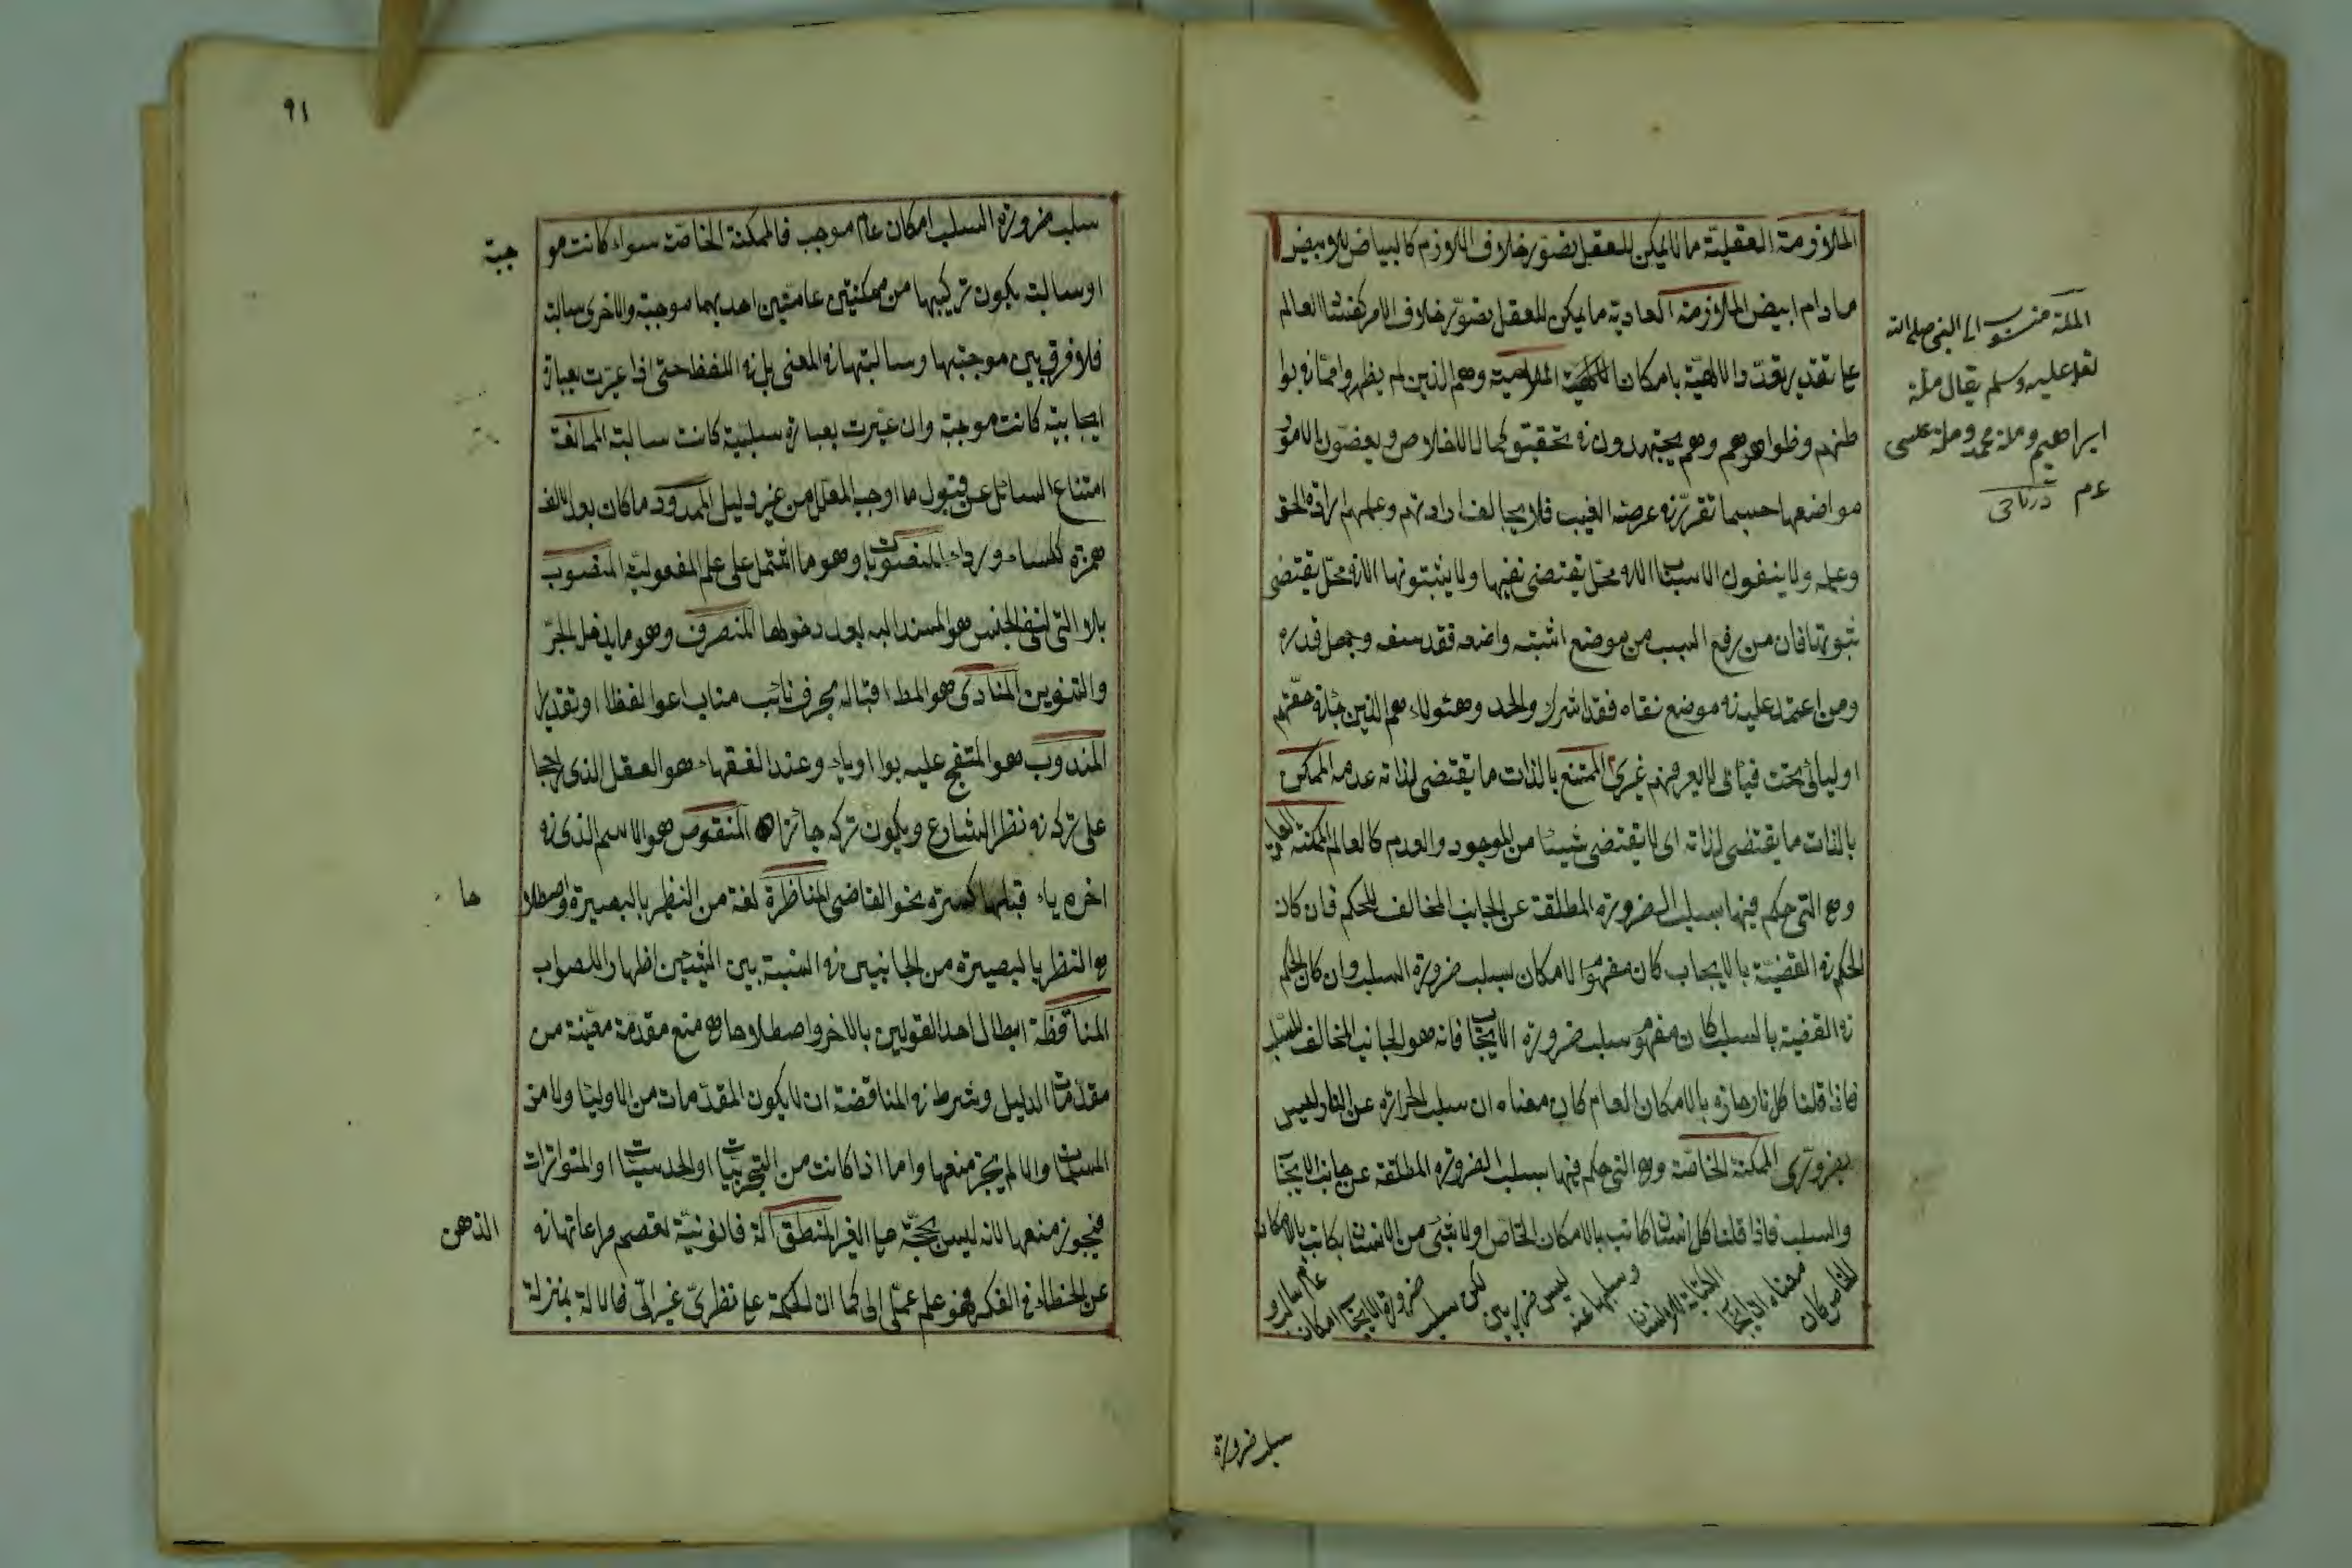 الملازمة العقلية ما لا يمكن للعقل تصور خلاف اللازم كالبياض للابيض
ما دام ابيض الملازمة العادية ما يمكن للعقل تصور خلاف الامر كفساد العالم
على تقدير تعدد الالهة بامكان الملامية وهم الذين لم يظهروا مما في بوا
طنهم وظواهرهم وهم يجتهدون في تحقيق كمال الاخلاص ويضعون الامور
مواضعها حسبما تقرر في عرصة الغيب فلا يخالف ارادتهم وعلمهم ارادة الحق
وعلمه ولا ينفون الاسباب الا في محل يقتضى نفيها ولا يثبتونها الا في محل يقتضى
ثبوتها فان من رفع السبب من موضع اثبته واضعه فقد سفه وجهل قدره
ومن اعتمد عليه في موضع نفاه فقد اشرك والحد وهئولاء هم الذين جاء في حقهم
اوليائى تحت قبائى لا يعرفهم غيرى الممتنع بالذات ما يقتضى لذاته عدمه الممكن
بالذات ما يقتضى لذاته اى لا يقتضى شيئا من الوجود والعدم كالعالم الممكنة العامة
وهى التى حكم فيها بسلب الضرورة المطلقة عن الجانب المخالف للحكم فان كان
الحكم في القضية بالايجاب كان مفهوم الامكان سلب ضرورة السلب وان كان الحكم
في القضية بالسلب كان مفهومه سلب ضرورة الايجاب فانه هو الجانب المخالف للسلب
فاذا قلنا كل نار حارة بالامكان العام كان معناه ان سلب الحرارة عن النار ليس
بضرورى الممكنة الخاصة وهى التى حكم فيها بسلب الضرورة المطلقة عن جانب الايجاب
والسلب فاذا قلنا كل انسان كاتب بالامكان الخاص او لا شئ من الانسان بكاتب بالامكان
الخاص كان معناه ان ايجاب الكتابة للانسان وسلبها عنه ليس ضروريين لكن سلب ضرورة الايجاب امكان عام سالب و
الملة منسوب الى النبى صلى الله
تعه عليه وسلم يقال ملة
ابراهيم وملة محمد وملة عيسى
عم
سلب ضرورة
٩١
سلب ضرورة السلب امكان عام موجب فالممكنة الخاصة سواء كانت مو
جبة
او سالبة يكون تركيبها من ممكنتين عامتين احديهما موجبة والاخرى سالبة
فلا فرق بين موجبتها وسالبتها في المعنى بل في اللفظ حتى اذا عبرت بعبارة
ايجابية كانت موجبة وان عبرت بعبارة سلبية كانت سالبة الممانعة
امتناع السائل عن قبول ما اوجب المعلل من غير دليل الممدود ما كان بعد الالف
همزة ككساء ورداء المنصوبات وهو ما اشتمل على علم المفعولية المنصوب
بلا التى لنفى الجنس هو المسند اليه بعد دخولها المنصرف وهو ما يدخل الجر
والتنوين المنادى هو المط اقباله بحرف نائب مناب ادعو لفظا او تقديرا
المندوب هو المتفجع عليه بوا او ياء وعند الفقهاء هو الفعل الذى راجحا
على تركه في نظر الشارع ويكون تركه جائزا المنقوص هو الاسم الذى في
اخره ياء قبلها كسرة نحو القاضى المناظرة لغة من النظير بالبصيرة واصطلا
حا
هى النظر بالبصيرة من الجانبين في النسبة بين الشيئين اظهارا للصواب
المناقضة ابطال احد القولين بالاخر واصطلاحا هى منع مقدمة معينة من
مقدمات الدليل وشرط في المناقضة ان لا يكون المقدمات من الاوليات ولا من
المسلمات والا لم يجز منعها واما اذا كانت من التجربيات او الحدسيات او المتواترات
فيجوز منعها لانه ليس بحجة على الغير المنطق الة قانونية تعصم مراعاتها في
الذهن
عن الخطاء في الفكر فهو علم عملى الى كما ان الحكمة علم نظرى غير الى فالالة بمنزلة